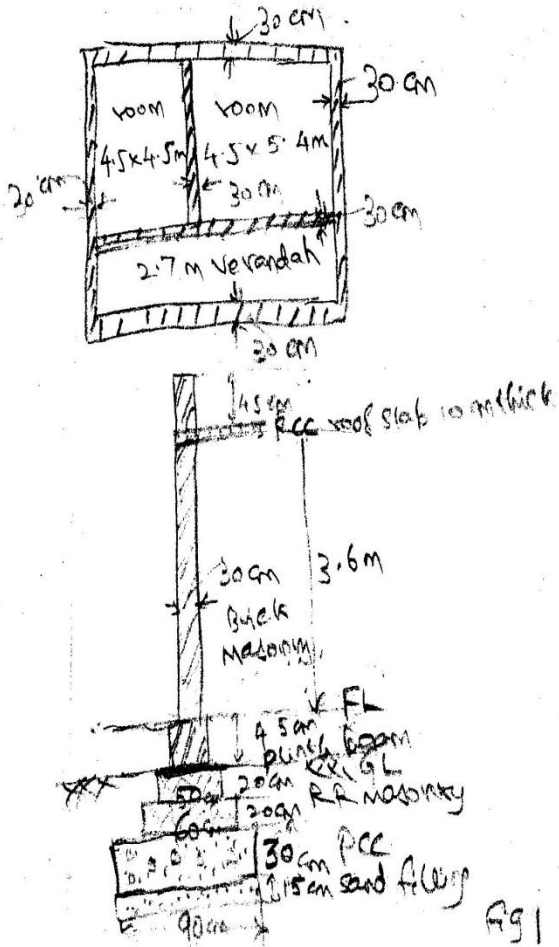 30 cm
room
4.5x4.5m
room
4.5x5.4m
30 cm
30 cm
30 cm
30 cm
2.7 m Verandah
30 cm
45 cm
RCC roof slab 10 cm thick
3.6 m
30 cm
Brick
Masonry
FL
45 cm
plinth beam
GL
50
20 cm
RR masonry
60
20cm
30 cm PCC
15 cm sand filling
90 cm
Fig 1